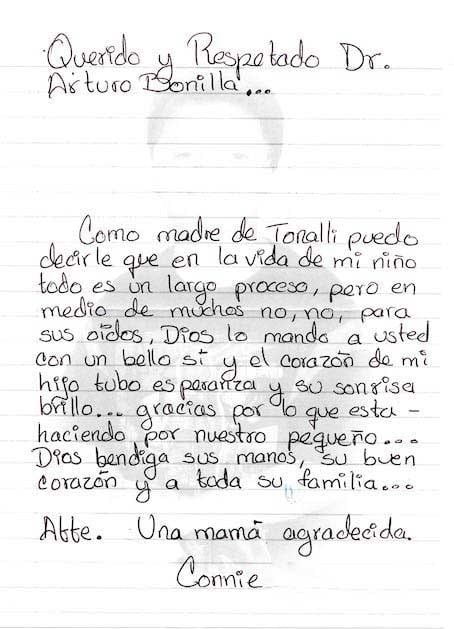 Querido y Respetado Dr.
Arturo Bonilla...
Como madre de Tonalli puedo
decirle que en la vida de mi niño
todo es un largo proceso, pero en
medio de muchos no, no, para
sus oidos, Dios lo mando a usted
con un bello sí y el corazón de mi
hijo tubo esperanza y su sonrisa
brillo... gracias por lo que esta-
haciendo por nuestro pequeño...
Dios bendiga sus manos, su buen
corazón y a toda su familia...
Atte. Una mamá agradecida.
Connie